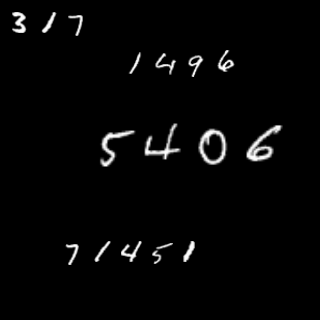 317
1496
5406
71451